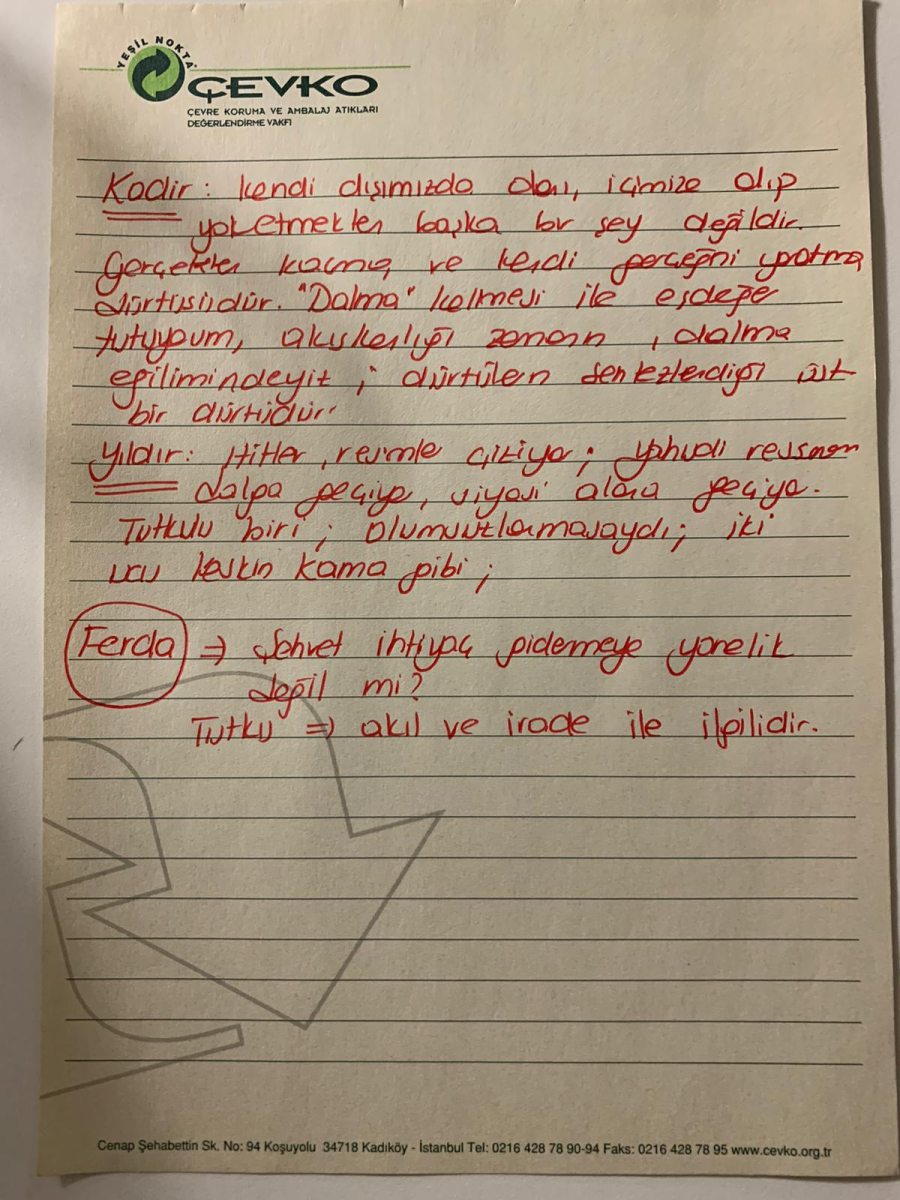 YEŞİL NOKTA
ÇEVKO
ÇEVRE KORUMA VE AMBALAJ ATIKLARI
DEĞERLENDİRME VAKFI
Kadir: kendi dışımızda olanı, içimize alıp
yoketmekten başka bir şey değildir.
Gerçekten kaçma ve kendi gerçeğini yaratma
dürtüsüdür. "Dalma" kelimesi ile eşdeğer
tutuyorum, akışkanlığı zamanın, dalma
eğilimindeyiz; dürtülerin sentezlendiği üst
bir dürtüdür.
Yıldır: Hitler, resimle çiziyor; yahudi ressamın
dalga geçiyor, siyasi alana geçiyor.
Tutkulu biri; olumsuzlanmasaydı; iki
ucu keskin kama gibi;
Ferda ⇒ Şehvet ihtiyaç gidermeye yönelik
değil mi?
Tutku ⇒ akıl ve irade ile ilgilidir.
Cenap Şehabettin Sk. No: 94 Koşuyolu 34718 Kadıköy - İstanbul Tel: 0216 428 78 90-94 Faks: 0216 428 78 95 www.cevko.org.tr